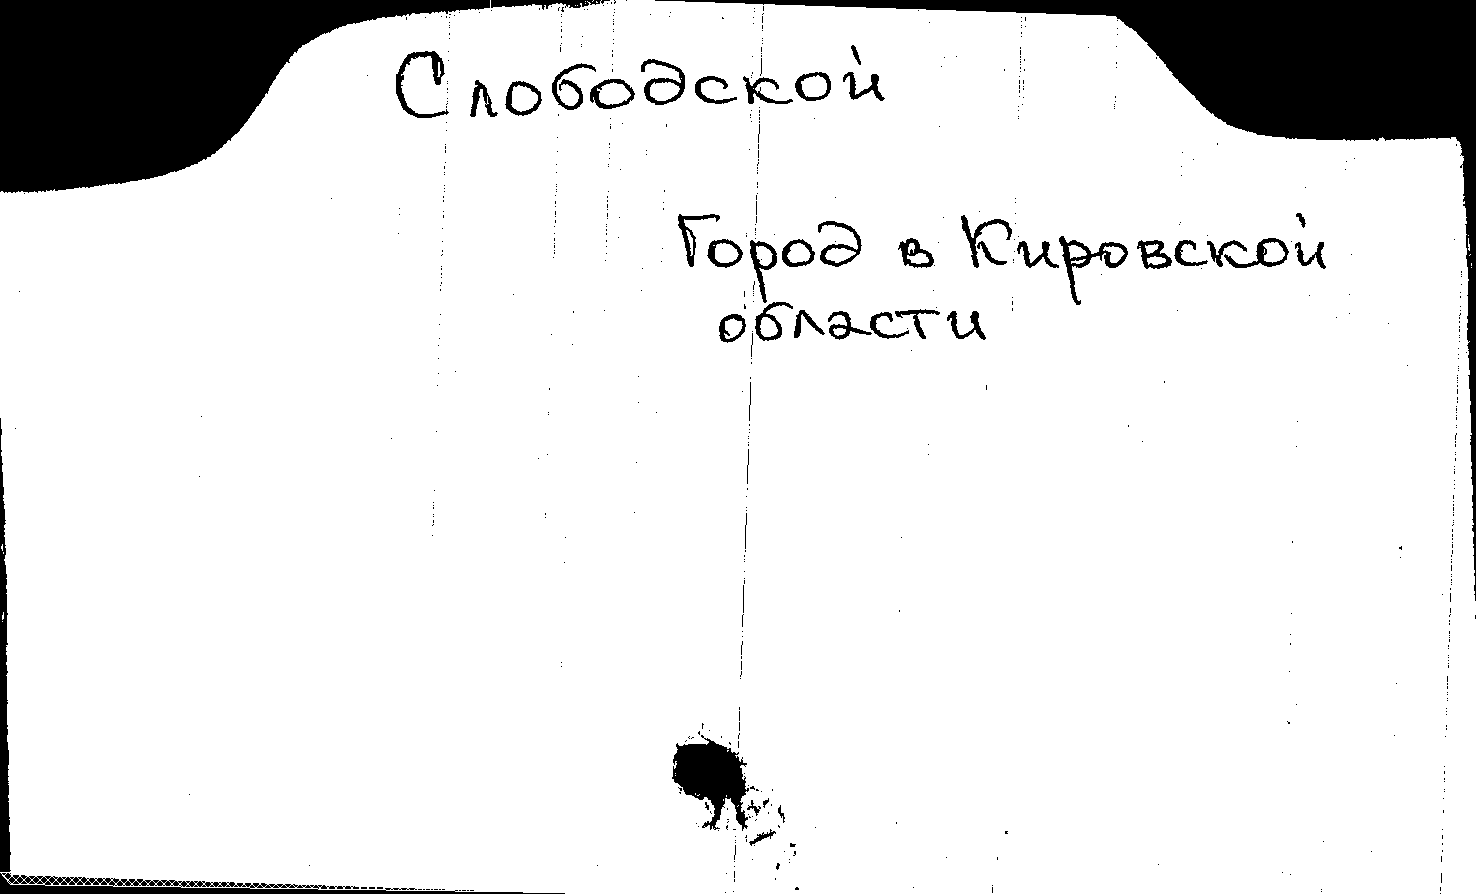 Слободской
Город в Кировской
области